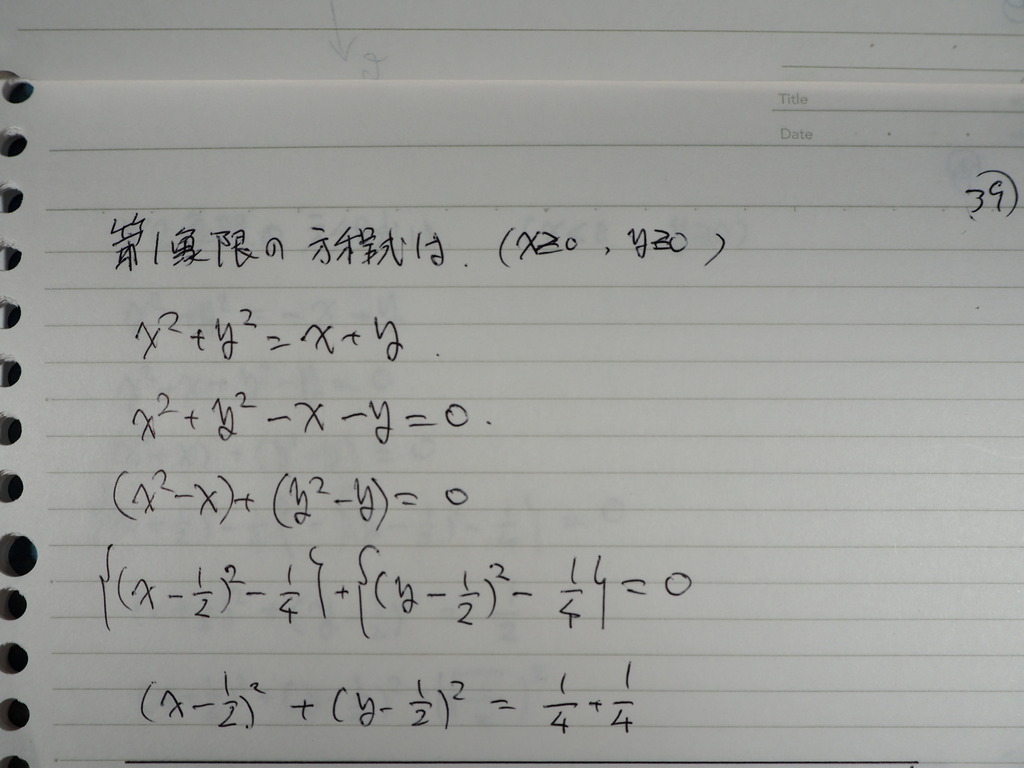 Title
Date
39)
第1象限の方程式は. (x≧0, y≧0)
x² + y² = x + y.
x² + y² - x - y = 0.
(x² - x) + (y² - y) = 0
{(x - 1/2)² - 1/4} + {(y - 1/2)² - 1/4} = 0
(x - 1/2)² + (y - 1/2)² = 1/4 + 1/4